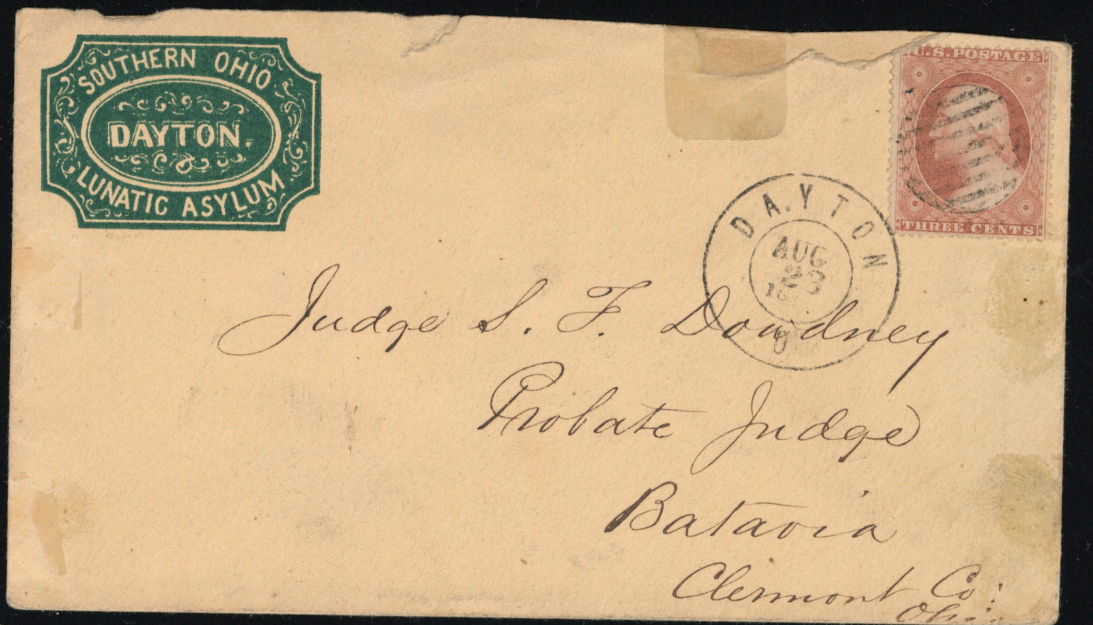 SOUTHERN OHIO
DAYTON.
LUNATIC ASYLUM
U.S. POSTAGE
THREE CENTS
DAYTON
AUG
23
O
Judge S. F. Dowdney
Probate Judge
Batavia
Clermont Co:
Ohio